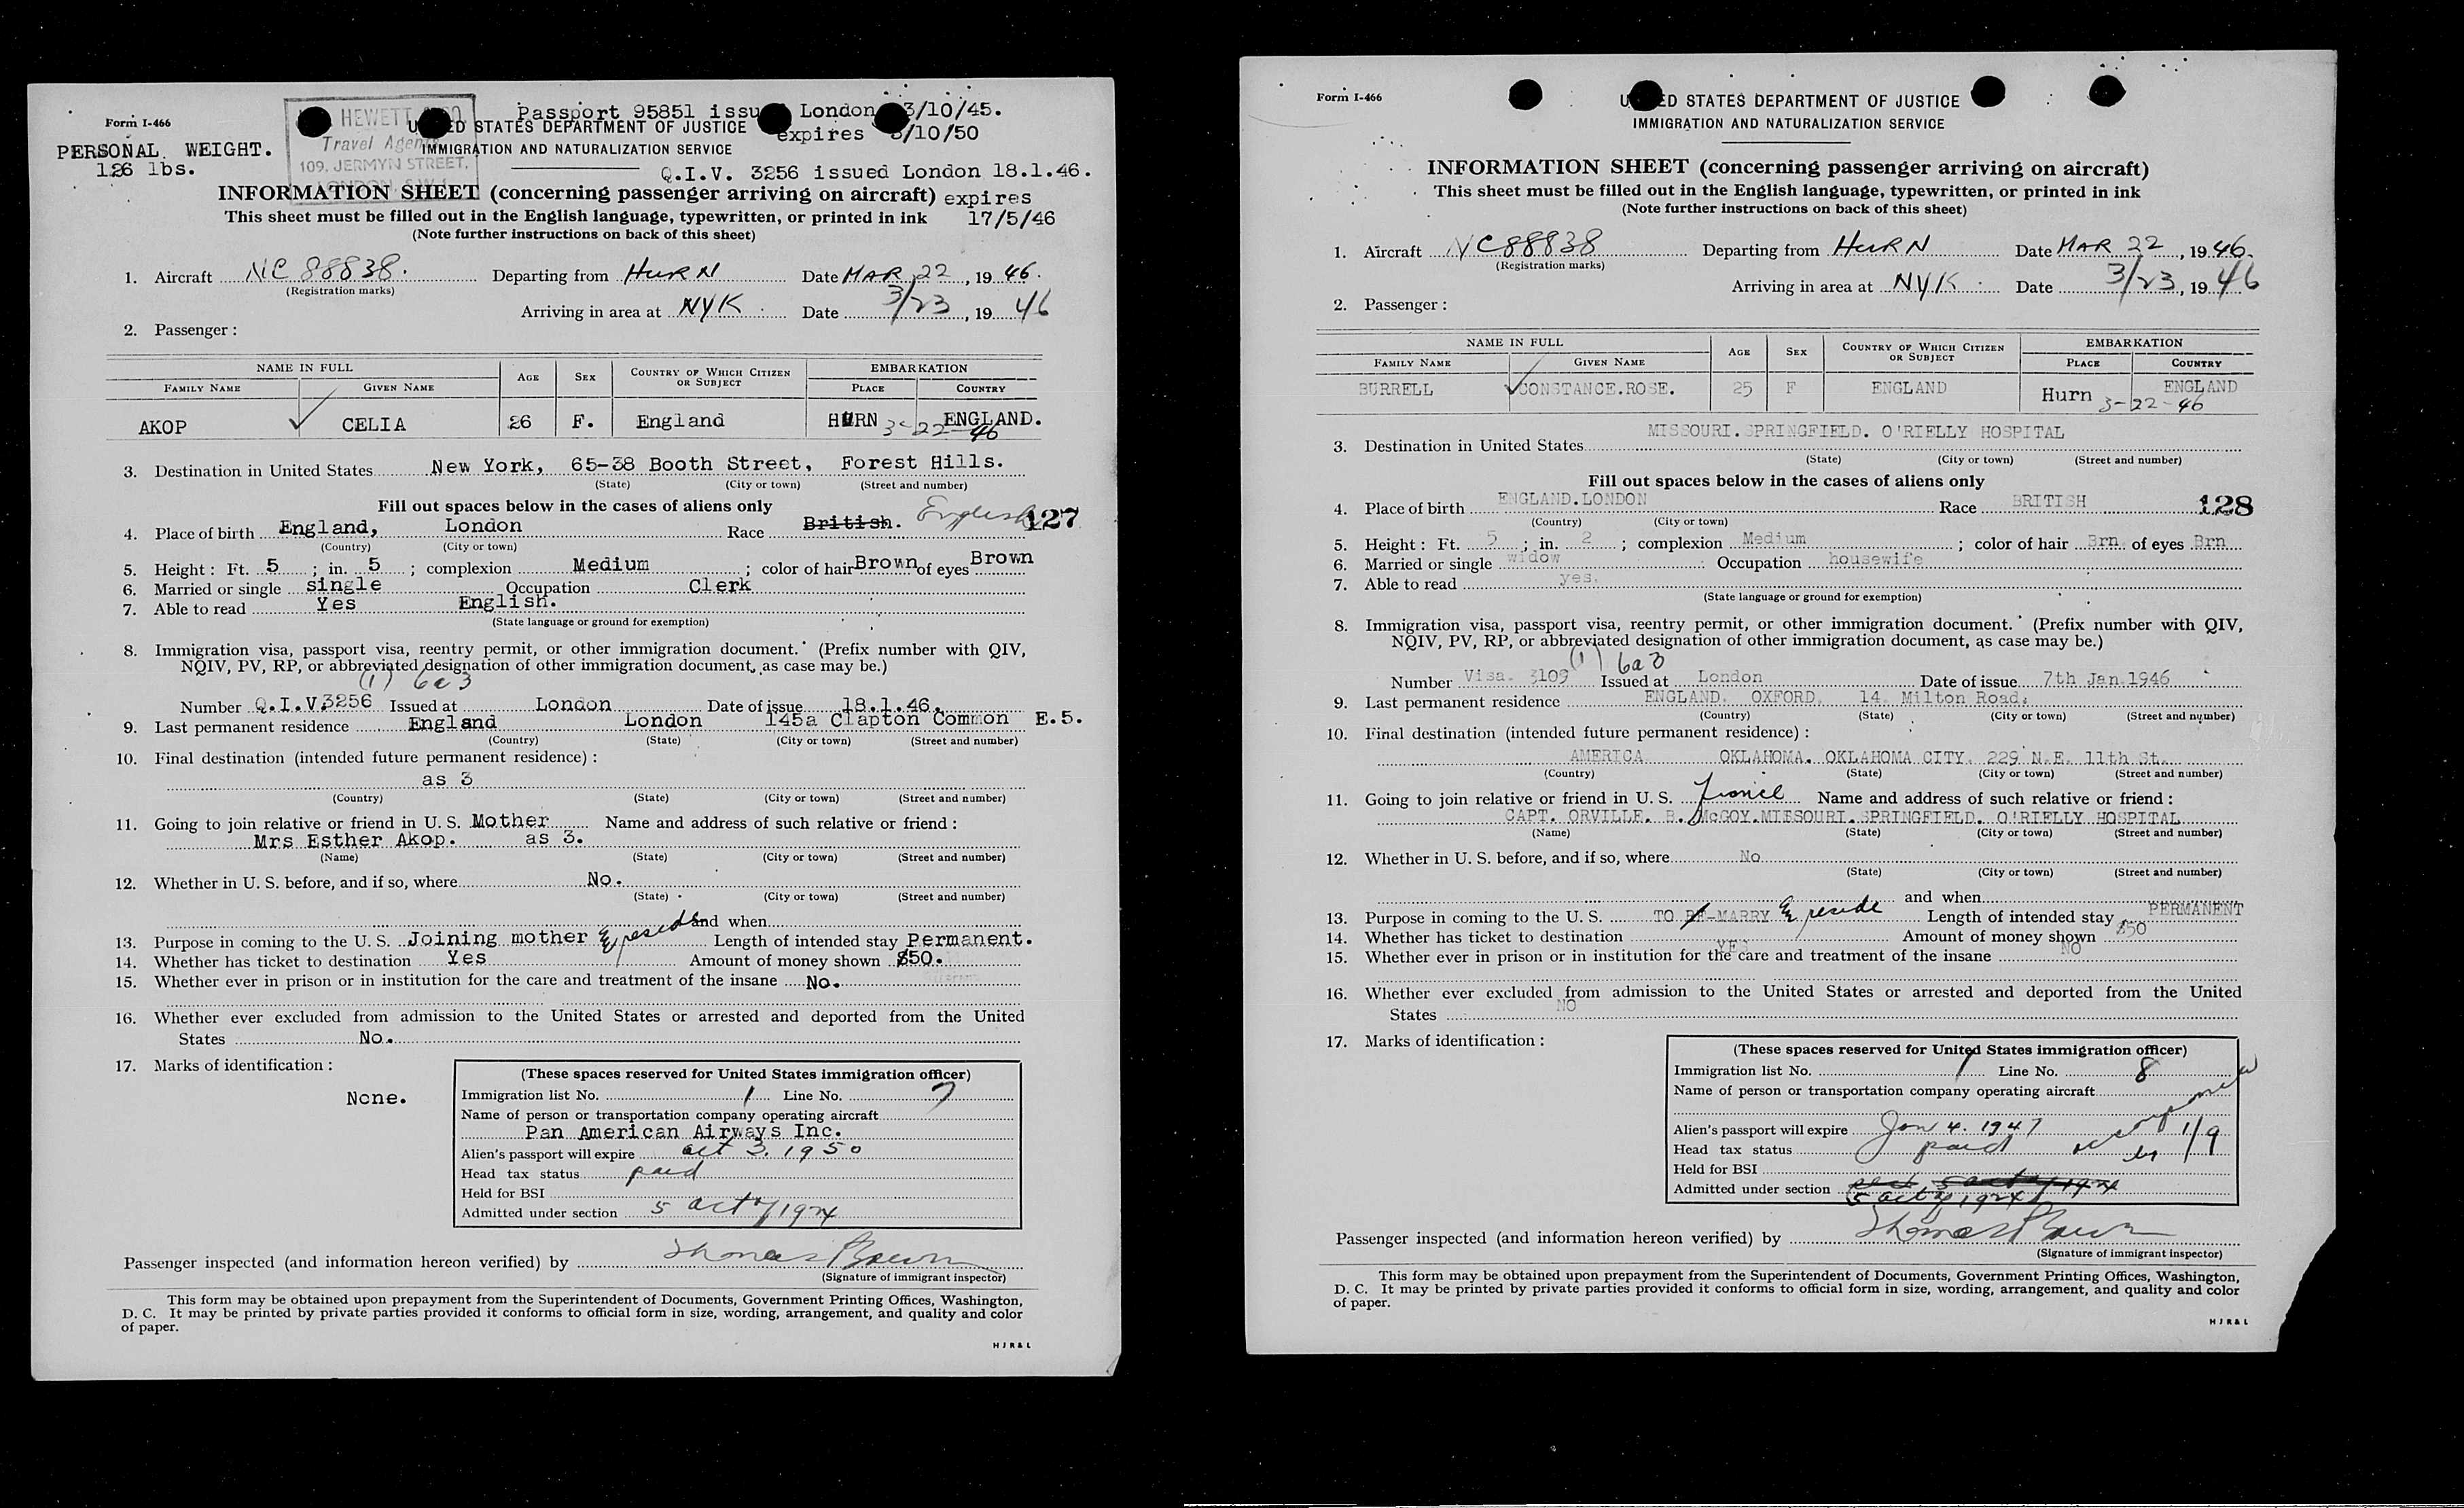 Form I-466
HEWETT & CO.
Travel Agents
109, JERMYN STREET,
LONDON, S.W.1.
Passport 95851 issued London 3/10/45.
expires 3/10/50
UNITED STATES DEPARTMENT OF JUSTICE
IMMIGRATION AND NATURALIZATION SERVICE
PERSONAL WEIGHT.
126 lbs.
Q.I.V. 3256 issued London 18.1.46.
INFORMATION SHEET (concerning passenger arriving on aircraft) expires
This sheet must be filled out in the English language, typewritten, or printed in ink 17/5/46
(Note further instructions on back of this sheet)
1. Aircraft NC 88838. Departing from HURN Date MAR 22, 19 46.
(Registration marks)
Arriving in area at NYK Date 3/23, 19 46
2. Passenger :
NAME IN FULL AGE SEX COUNTRY OF WHICH CITIZEN OR SUBJECT EMBARKATION
FAMILY NAME GIVEN NAME PLACE COUNTRY
AKOP CELIA 26 F. England HURN ENGLAND.
3-22-46
3. Destination in United States New York, 65-38 Booth Street, Forest Hills.
(State) (City or town) (Street and number)
Fill out spaces below in the cases of aliens only
4. Place of birth England, London Race British. English 127
(Country) (City or town)
5. Height : Ft. 5 ; in. 5 ; complexion Medium ; color of hair Brown of eyes Brown
6. Married or single single Occupation Clerk
7. Able to read Yes English.
(State language or ground for exemption)
8. Immigration visa, passport visa, reentry permit, or other immigration document. (Prefix number with QIV,
NQIV, PV, RP, or abbreviated designation of other immigration document, as case may be.)
(1) 6a3
Number Q.I.V.3256 Issued at London Date of issue 18.1.46.
9. Last permanent residence England London 145a Clapton Common E.5.
(Country) (State) (City or town) (Street and number)
10. Final destination (intended future permanent residence) :
as 3
(Country) (State) (City or town) (Street and number)
11. Going to join relative or friend in U. S. Mother Name and address of such relative or friend :
Mrs Esther Akop. as 3.
(Name) (State) (City or town) (Street and number)
12. Whether in U. S. before, and if so, where No.
(State) (City or town) (Street and number)
and when
13. Purpose in coming to the U. S. Joining mother & reside Length of intended stay Permanent.
14. Whether has ticket to destination Yes Amount of money shown $50.
15. Whether ever in prison or in institution for the care and treatment of the insane No.
16. Whether ever excluded from admission to the United States or arrested and deported from the United
States No.
17. Marks of identification :
None.
(These spaces reserved for United States immigration officer)
Immigration list No. 1 Line No. 7
Name of person or transportation company operating aircraft
Pan American Airways Inc.
Alien's passport will expire Oct 3, 1950
Head tax status paid
Held for BSI
Admitted under section 5 act of 1924
Passenger inspected (and information hereon verified) by Thomas Bown
(Signature of immigrant inspector)
This form may be obtained upon prepayment from the Superintendent of Documents, Government Printing Offices, Washington,
D. C. It may be printed by private parties provided it conforms to official form in size, wording, arrangement, and quality and color
of paper.
H J R & L
Form I-466
UNITED STATES DEPARTMENT OF JUSTICE
IMMIGRATION AND NATURALIZATION SERVICE
INFORMATION SHEET (concerning passenger arriving on aircraft)
This sheet must be filled out in the English language, typewritten, or printed in ink
(Note further instructions on back of this sheet)
1. Aircraft NC88838 Departing from HURN Date MAR 22, 19 46.
(Registration marks)
Arriving in area at NYK Date 3/23, 19 46
2. Passenger :
NAME IN FULL AGE SEX COUNTRY OF WHICH CITIZEN OR SUBJECT EMBARKATION
FAMILY NAME GIVEN NAME PLACE COUNTRY
BURRELL CONSTANCE.ROSE. 25 F ENGLAND Hurn ENGLAND
3-22-46
MISSOURI.SPRINGFIELD. O'RIELLY HOSPITAL
3. Destination in United States
(State) (City or town) (Street and number)
Fill out spaces below in the cases of aliens only
4. Place of birth ENGLAND.LONDON Race BRITISH 128
(Country) (City or town)
5. Height : Ft. 5 ; in. 2 ; complexion Medium ; color of hair Brn. of eyes Brn
6. Married or single widow Occupation housewife
7. Able to read yes.
(State language or ground for exemption)
8. Immigration visa, passport visa, reentry permit, or other immigration document. (Prefix number with QIV,
NQIV, PV, RP, or abbreviated designation of other immigration document, as case may be.)
(1) 6a3
Number Visa. 3109 Issued at London Date of issue 7th Jan.1946
9. Last permanent residence ENGLAND. OXFORD. 14. Milton Road.
(Country) (State) (City or town) (Street and number)
10. Final destination (intended future permanent residence) :
AMERICA OKLAHOMA. OKLAHOMA CITY. 229 N.E. 11th St.
(Country) (State) (City or town) (Street and number)
11. Going to join relative or friend in U. S. fiancé Name and address of such relative or friend :
CAPT. ORVILLE. B. McGOY.MISSOURI.SPRINGFIELD. O'RIELLY HOSPITAL
(Name) (State) (City or town) (Street and number)
12. Whether in U. S. before, and if so, where No
(State) (City or town) (Street and number)
and when
13. Purpose in coming to the U. S. TO RE-MARRY & reside Length of intended stay PERMANENT
14. Whether has ticket to destination YES Amount of money shown $50
15. Whether ever in prison or in institution for the care and treatment of the insane NO
16. Whether ever excluded from admission to the United States or arrested and deported from the United
States NO
17. Marks of identification :
(These spaces reserved for United States immigration officer)
Immigration list No. 1 Line No. 8
Name of person or transportation company operating aircraft
Alien's passport will expire Jan 4, 1947
Head tax status paid 1/9
Held for BSI
Admitted under section 5 act of 1924
Passenger inspected (and information hereon verified) by Thomas Bown
(Signature of immigrant inspector)
This form may be obtained upon prepayment from the Superintendent of Documents, Government Printing Offices, Washington,
D. C. It may be printed by private parties provided it conforms to official form in size, wording, arrangement, and quality and color
of paper.
H J R & L